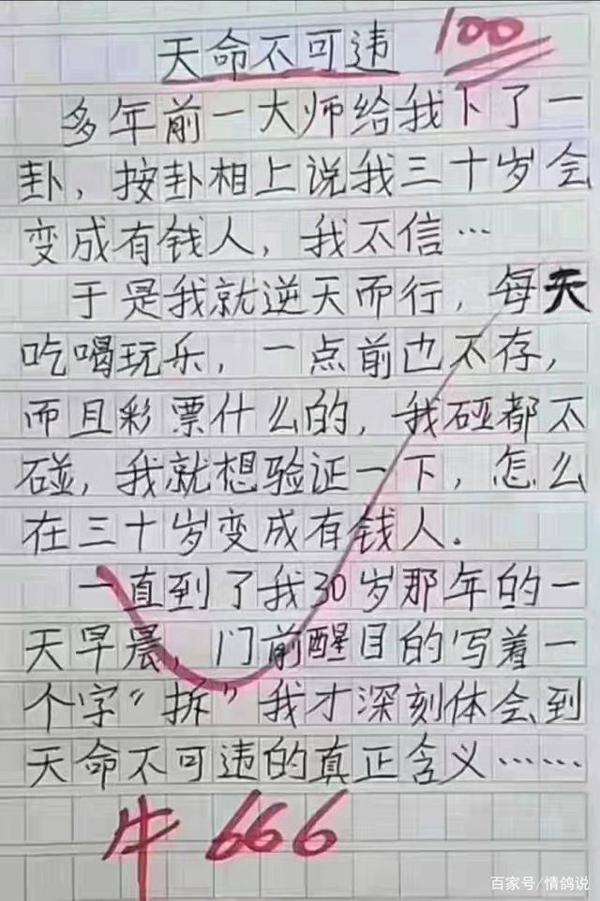 天命不可违 100
多年前一大师给我下了一
卦，按卦相上说我三十岁会
变成有钱人，我不信…
于是我就逆天而行，每天
吃喝玩乐，一点前也不存，
而且彩票什么的，我碰都不
碰，我就想验证一下，怎么
在三十岁变成有钱人。
一直到了我30岁那年的一
天早晨，门前醒目的写着一
个字“拆”我才深刻体会到
天命不可违的真正含义……
牛666
百家号/情鸽说